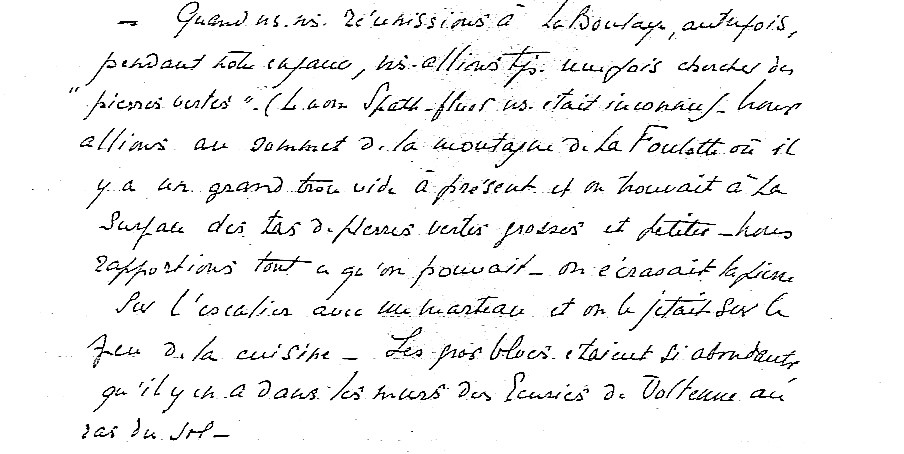 - Quand ns. ns. réunissions à La Boulaye, autrefois,
pendant notre enfance, ns. allions tjs. une fois chercher des
"pierres vertes". (Le nom Spath-fluor ns. était inconnu) - Nous
allions au sommet de la montagne de La Foulotte où il
y a un grand trou vide à présent et on trouvait à la
surface des tas de pierres vertes grosses et petites - Nous
rapportions tout ce qu'on pouvait - on écrasait la pierre
sur l'escalier avec un marteau et on le jetait sur le
feu de la cuisine - Les gros blocs étaient si abondants
qu'il y en a dans les murs des Écuries de Voltenne au
ras du sol -